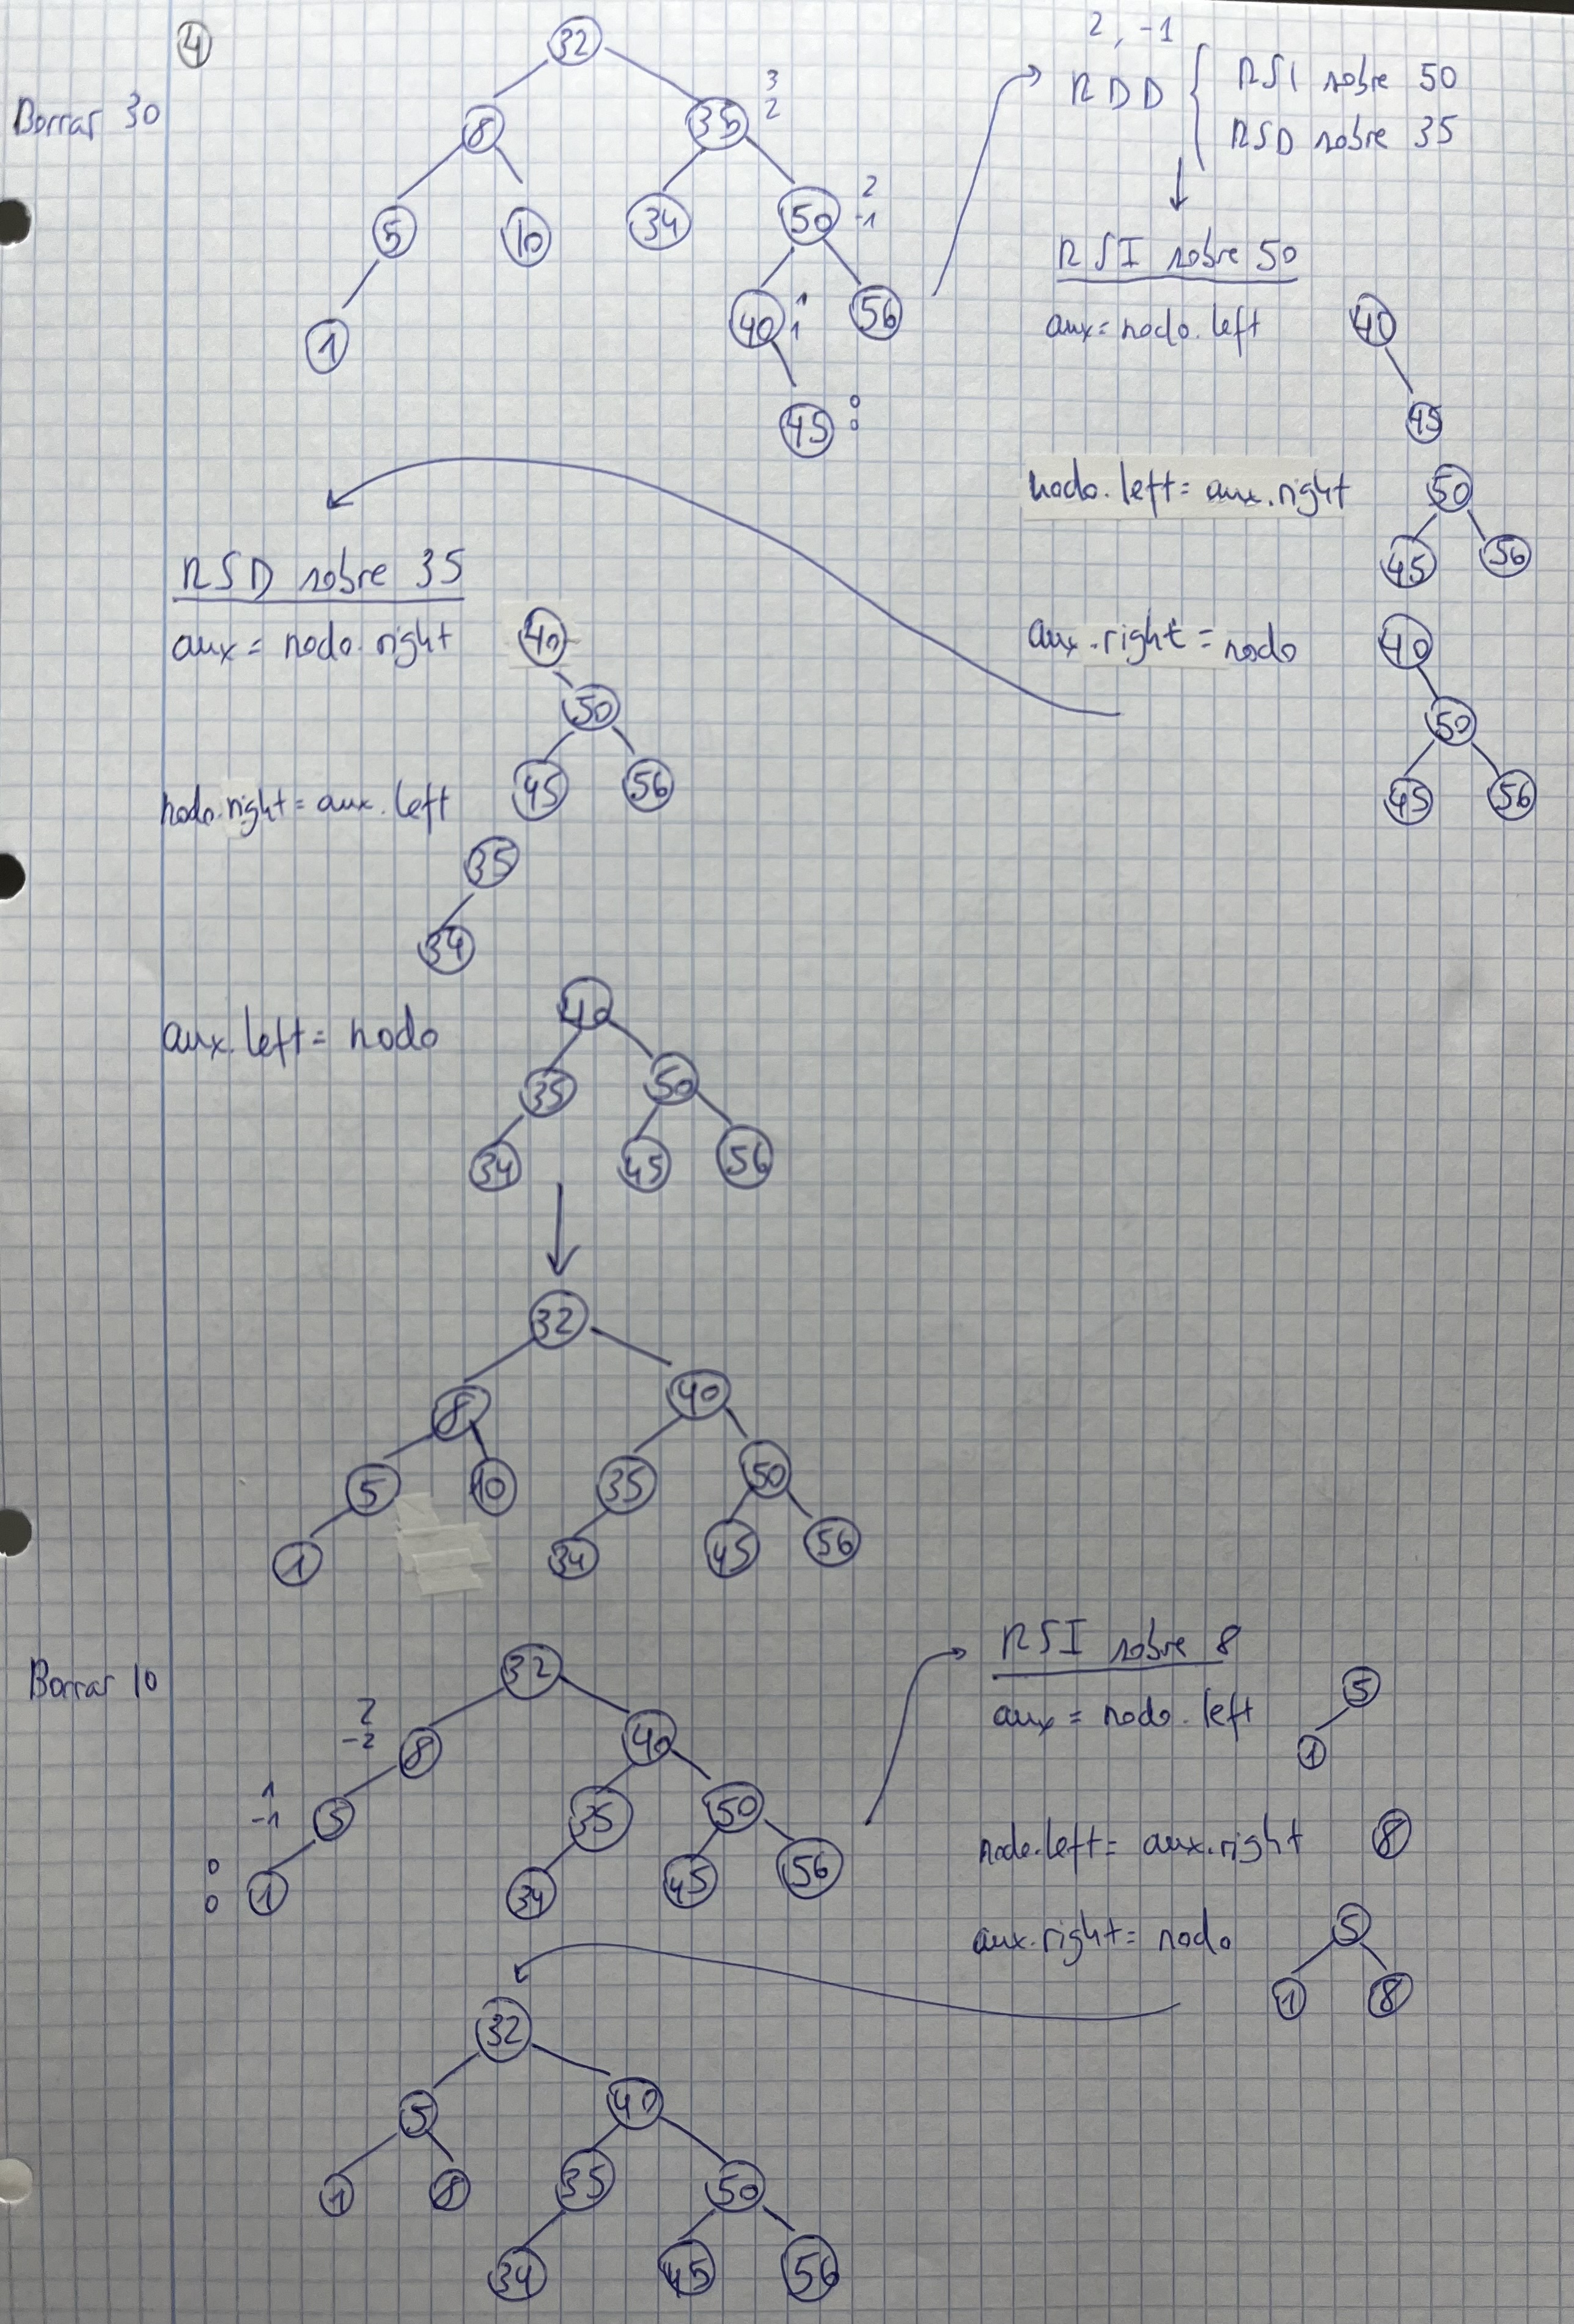 4
Borrar 30
32
8 35 3 2
5 10 34 50 2 -1
1 40 1 1 56
45 0 0
2, -1
RDD { RSI sobre 50
RSD sobre 35
RSI sobre 50
aux = nodo.left 40
45
nodo.left = aux.right 50
45 56
aux.right = nodo 40
50
45 56
RSD sobre 35
aux = nodo.right 40
50
45 56
nodo.right = aux.left
35
34
aux.left = nodo 40
35 50
34 45 56
32
8 40
5 10 35 50
1 34 45 56
Borrar 10
32
2 -2 8 40
1 -1 5 35 50
0 0 1 34 45 56
RSI sobre 8
aux = nodo.left 5
1
nodo.left = aux.right 8
aux.right = nodo 5
1 8
32
5 40
1 8 35 50
34 45 56